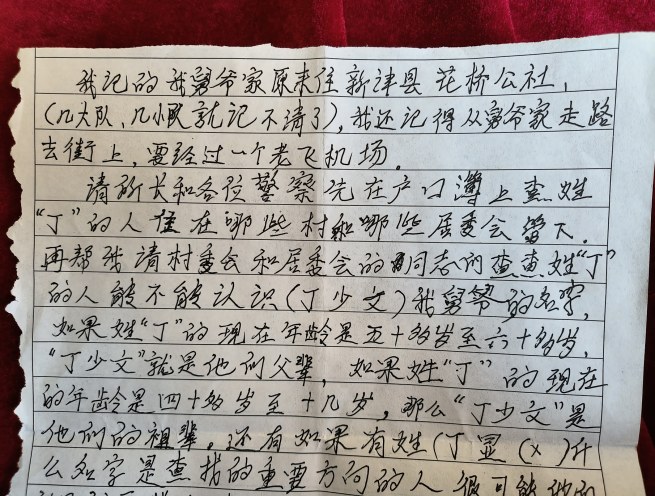 我记的我舅爷家原来住新津县花桥公社,
(几大队、几小队就记不清了),我还记得从舅爷家走路
去街上,要经过一个老飞机场。
请所长和各位警察先在户口簿上查姓
“丁”的人住在哪些村和哪些居委会管下.
再帮我请村委会和居委会的同志们查查姓“丁”
的人能不能认识(丁少文)我舅爷的名字,
如果姓“丁”的现在年龄是五十多岁至六十多岁,
“丁少文”就是他们父辈,如果姓“丁”的现在
的年龄是四十多岁至十几岁,那么“丁少文”是
他们的祖辈,还有如果有姓(丁显(x)什
么名字是查找的重要方向的人很可能